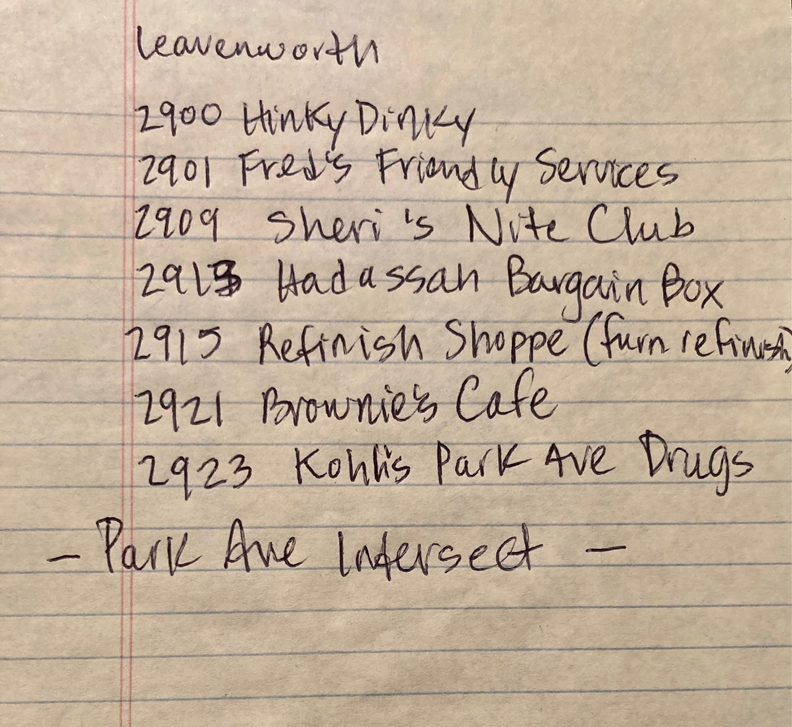 Leavenworth
2900 Hinky Dinky
2901 Fred's Friendly Services
2909 Sheri's Nite Club
2913 Hadassah Bargain Box
2915 Refinish Shoppe (furn refinish)
2921 Brownie's Cafe
2923 Kohll's Park Ave Drugs
- Park Ave Intersect -